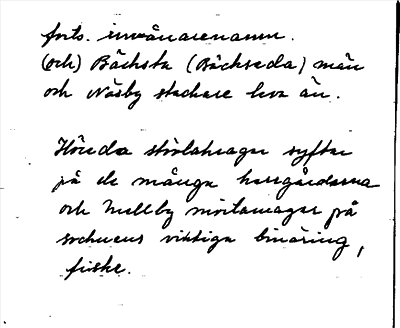 forts. invånarenamn.
(och) Bäcksta (Bäckseda) män
och Näsby stackare leva än.
Höreda störlatragar syftar
på de många herrgårdarna
och Mellby mörtamagar på
socknens viktiga binäring,
fiske.